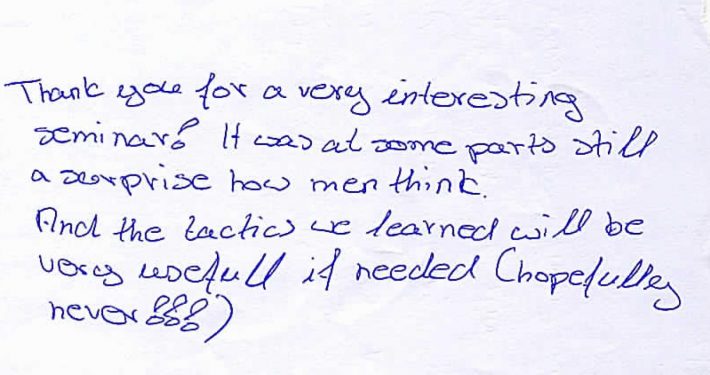 Thank you for a very interesting
seminar! It was at some parts still
a surprise how men think.
And the tactics we learned will be
very usefull if needed (hopefulley
never!!!)